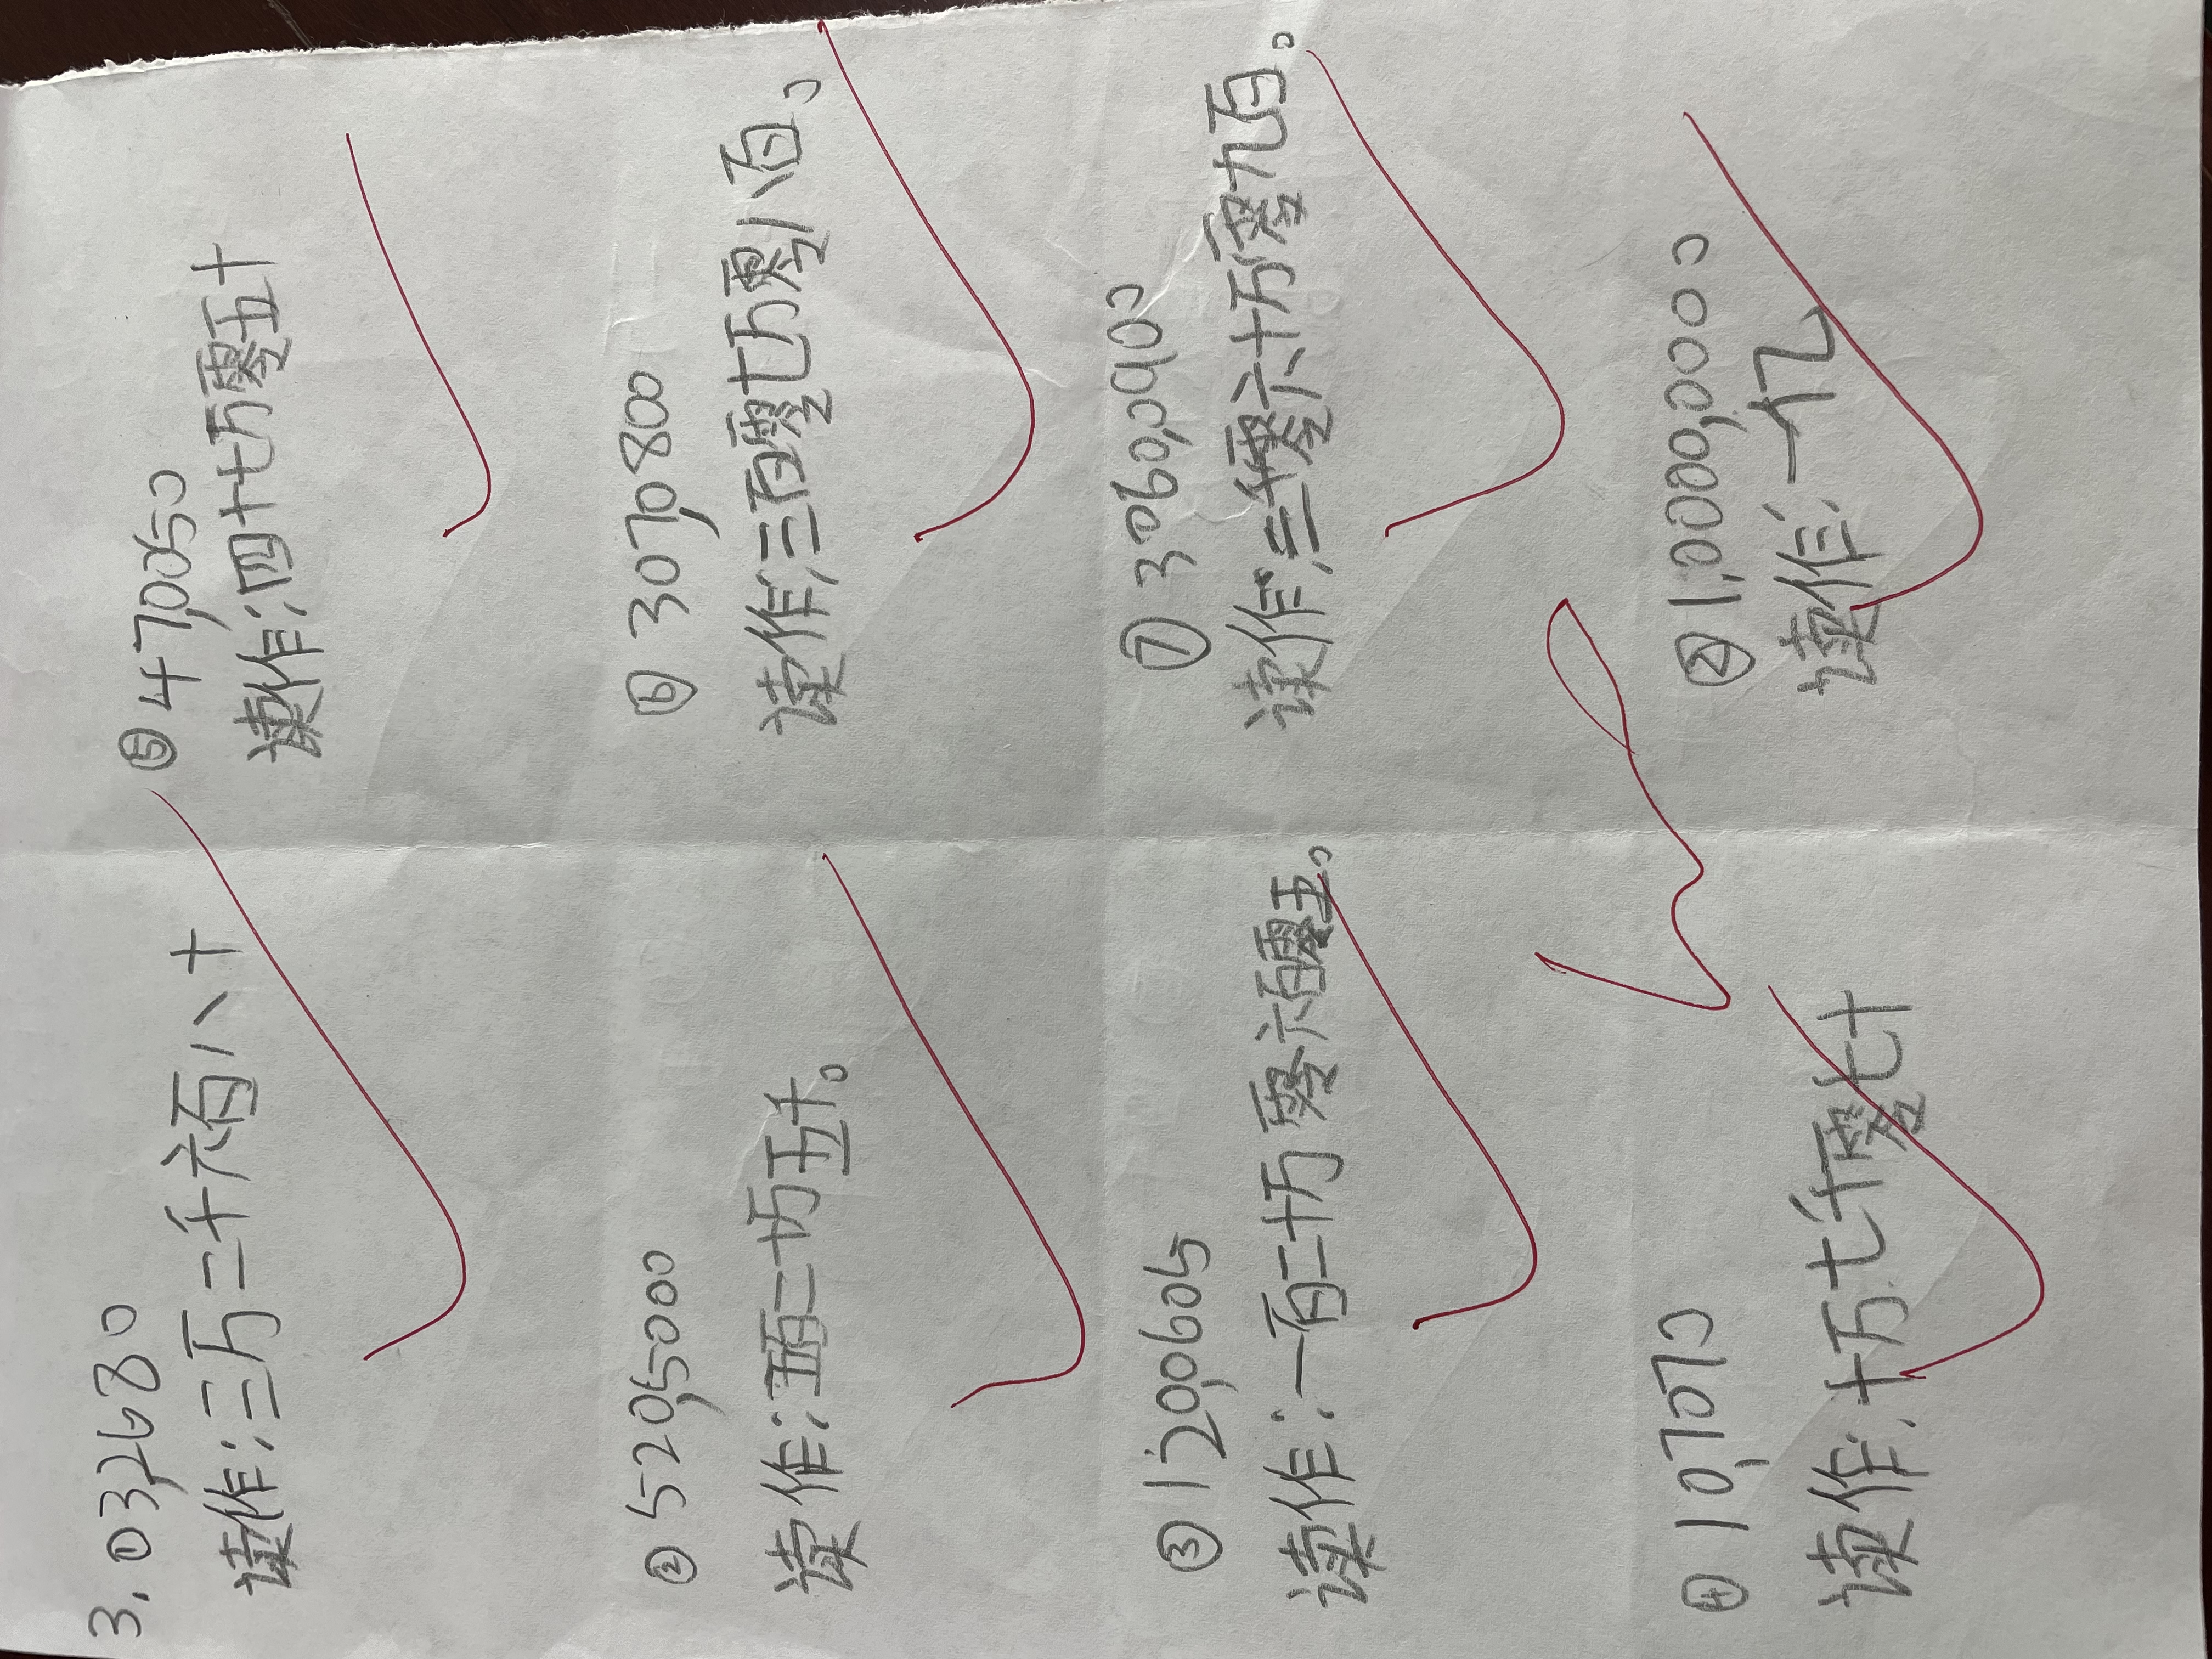 3.①3,2680
读作:三万二千六百八十
②520,5000
读作:五百二十万五千。
③120,0605
读作:一百二十万零六百零五。
④10,7070
读作:十万七千零七十
⑤47,0050
读作:四十七万零五十
⑥307,0800
读作:三百零七万零八百。
⑦3060,0900
读作:三千零六十万零九百。
⑧1,0000,0000
读作:一亿